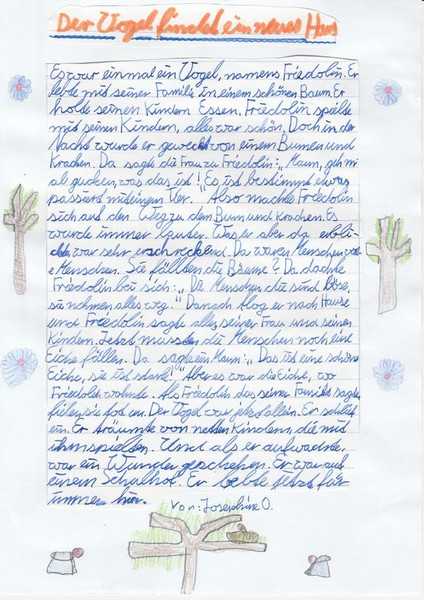 Der Vogel findet ein neues Haus
Es war einmal ein Vogel, namens Friedolin. Er
lebte mit seiner Familie in einem schönen Baum. Er
holde seinen Kindern Essen. Friedolin spielte
mid seinen Kindern, alles war schön. Doch in der
Nacht wurde er geweckt von einem Bumen und
Krachen. Da sagte die Frau zu Friedolin: „Mann, geh m
al gucken was das ist! Es ist bestimmt etwas
passiert mit einem Tier." Also machte Friedolin
sich auf den Weg zu dem Bum und Krachen. Es
wurde immer lauter. Was er aber da erbli-
ckte, war sehr erschreckend. Da waren Menschen
Menschen. Sie fällten die Bäume. Da dachte
Friedolin bei sich: „Die Menschen die sind böse,
sie nehmen alles weg." Danach flog er nach Hause
und Friedolin sagte alles seiner Frau und seinen
Kindern. Jetzt mussten die Menschen noch eine
Eiche fällen. Da sagte ein Mann: „Das ist eine schöne
Eiche, sie ist stark!" Aber es war die Eiche, wo
Friedolin wohnte. Als Friedolin das seiner Familie sagte,
fielen sie tod um. Der Vogel war jetzt allein. Er schlief
ein. Er träumte von netten Kindern, die mit
ihm spielden. Und als er aufwachte,
war ein Wunder geschehen. Er war auf
einem Schulhof. Er lebte jetzt für
immer hier.
Von: Josephine O.